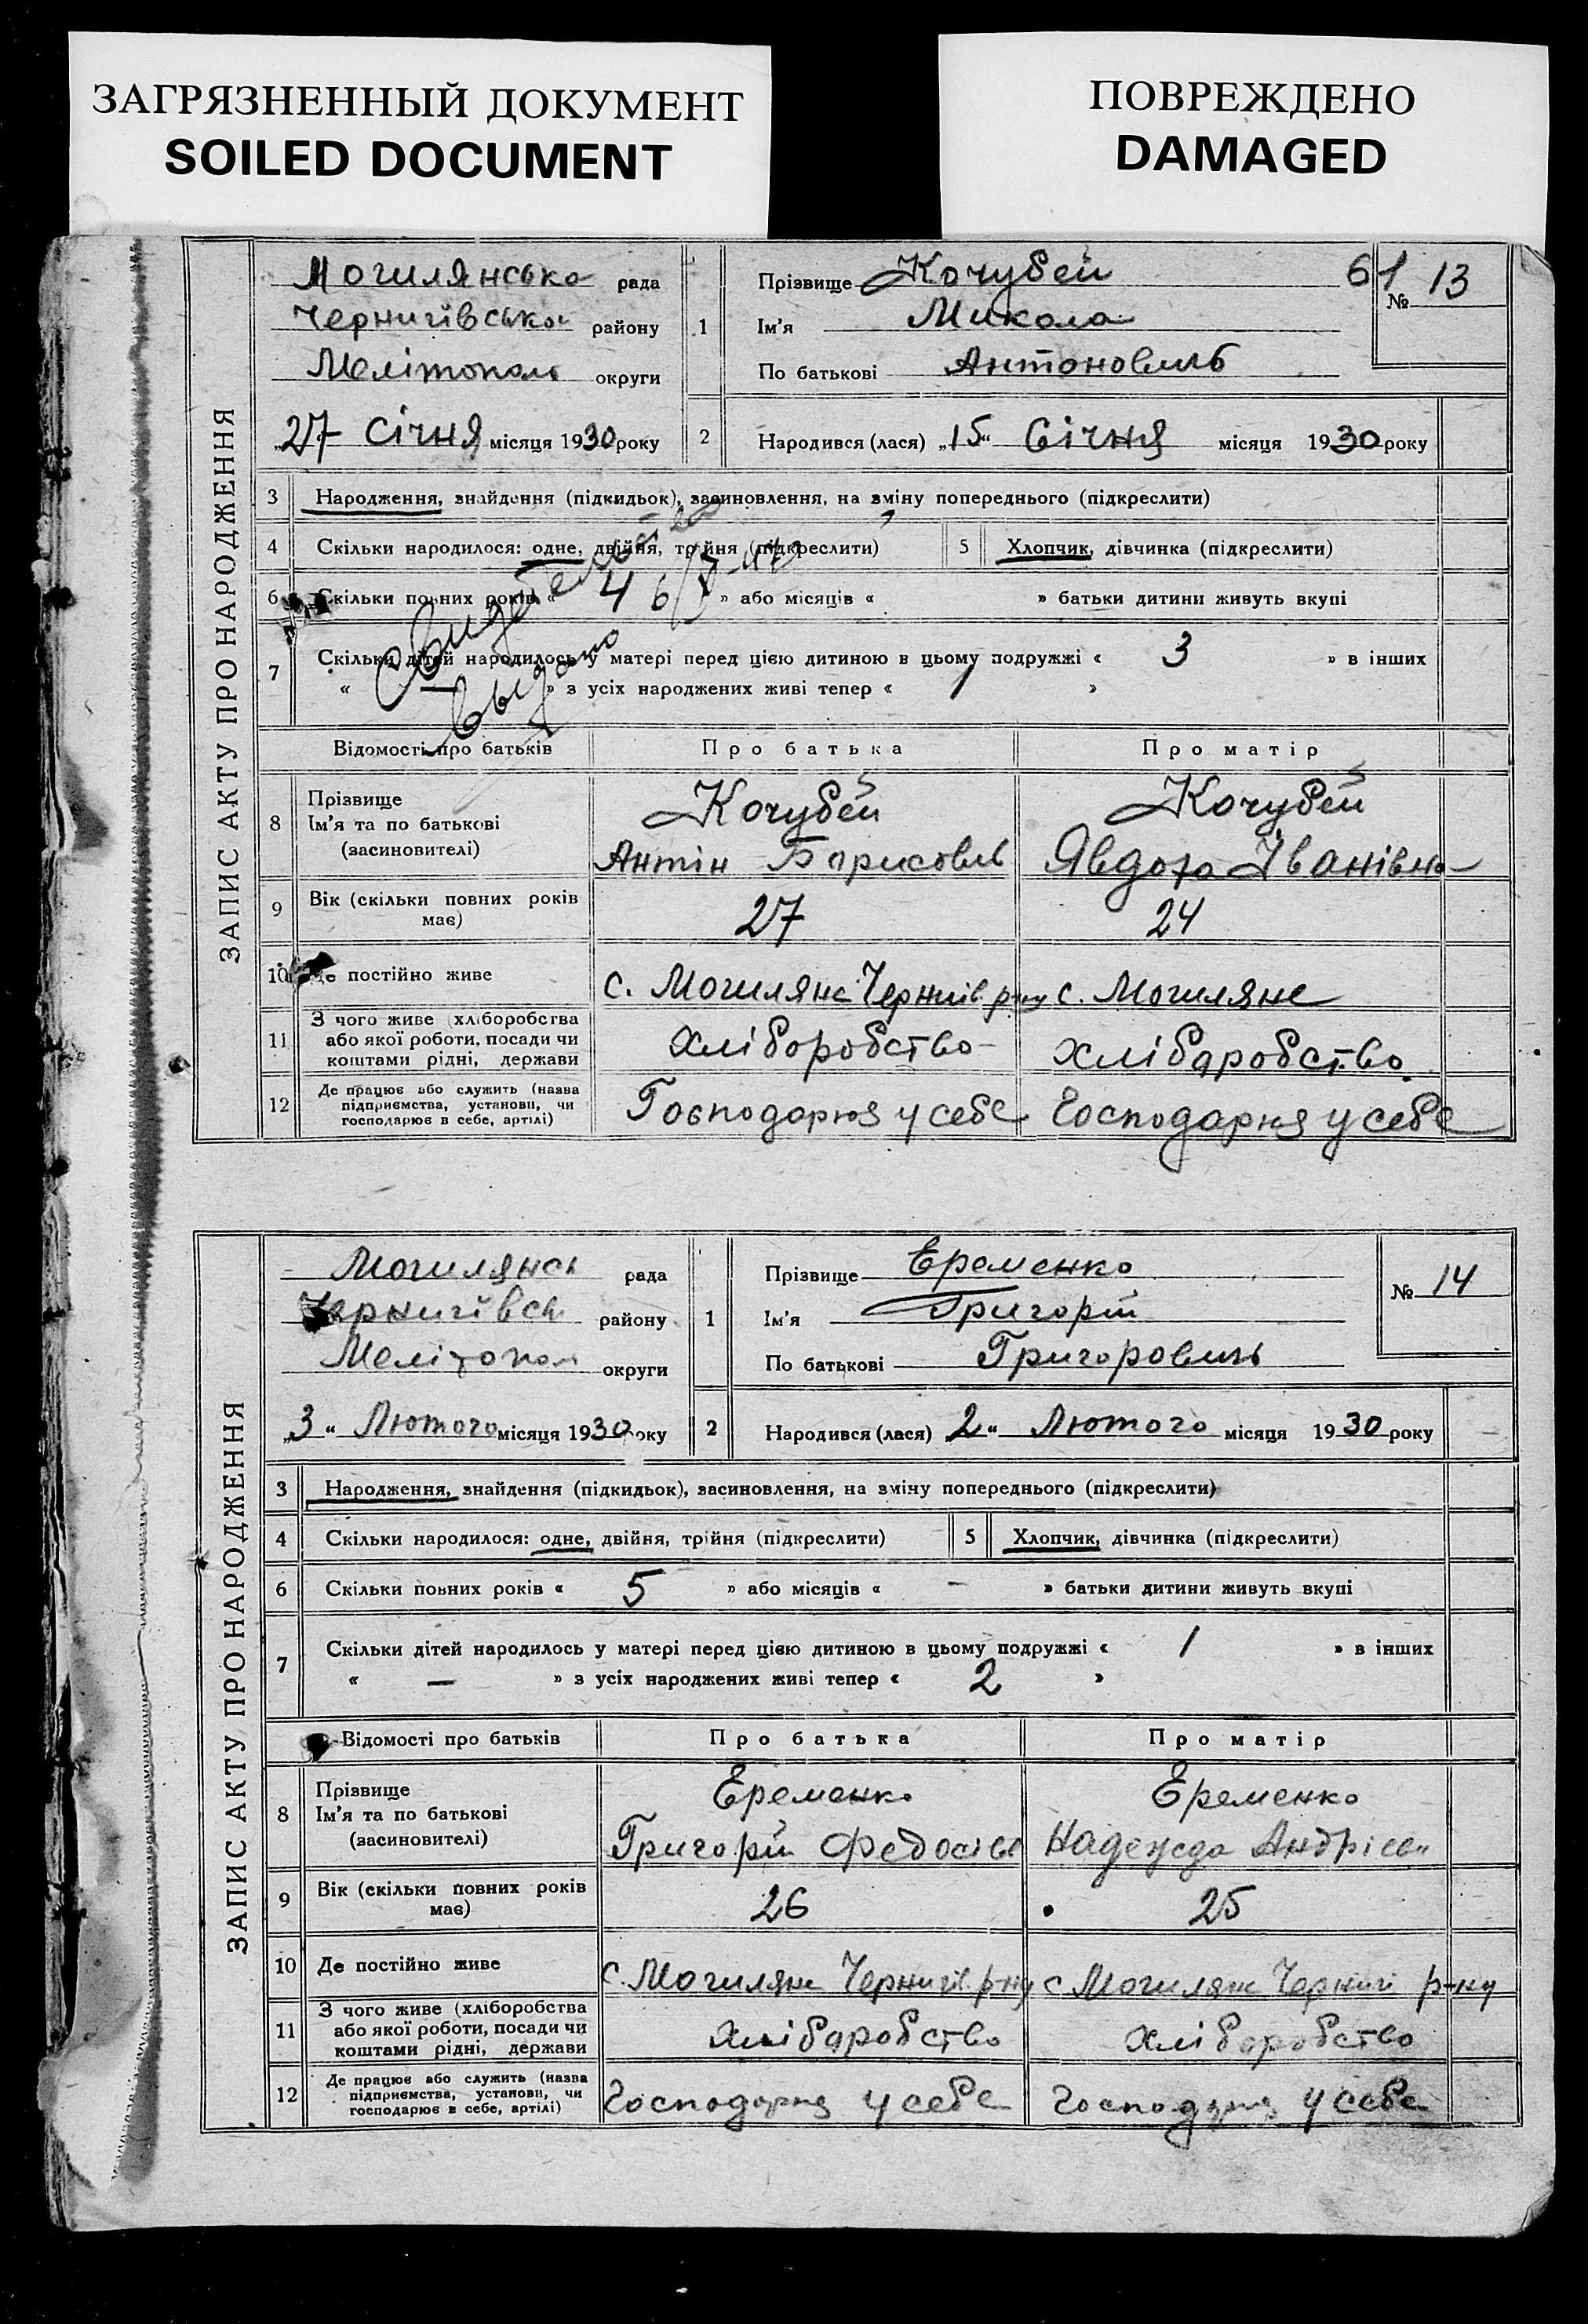 ЗАГРЯЗНЕННЫЙ ДОКУМЕНТ
SOILED DOCUMENT
ПОВРЕЖДЕНО
DAMAGED
ЗАПИС АКТУ ПРО НАРОДЖЕННЯ
Могилянська рада
Чернигівська району
Мелітополь округи
„27 Січня місяця 1930 року
1 Прізвище Кочубей
Ім'я Микола
По батькові Антонович
61
№ 13
2 Народився (лася) „15" Січня місяця 1930 року
3 Народження, знайдення (підкидьок), засиновлення, на зміну попереднього (підкреслити)
4 Скільки народилося: одне, двійня, тройня (підкреслити)
5 Хлопчик, дівчинка (підкреслити)
6 Скільки повних років « 4 » або місяців « » батьки дитини живуть вкупі
7 Скільки дітей народилось у матері перед цією дитиною в цьому подружжі « 3 » в інших
« — » з усіх народжених живі тепер « 1 »
Свидетельство
выдано 6/V-
Відомості про батьків Про батька Про матір
8 Прізвище Ім'я та по батькові (засиновителі)
Кочубей Кочубей
Антін Борисович Явдоха Іванівна
9 Вік (скільки повних років має) 27 24
10 Де постійно живе с. Могиляне Чернигів р-ну с. Могиляне
11 З чого живе (хліборобства або якої роботи, посади чи коштами рідні, держави
Хліборобство Хліборобство
12 Де працює або служить (назва підприємства, установи, чи господарює в себе, артілі)
Господарює у себе Господарює у себе
ЗАПИС АКТУ ПРО НАРОДЖЕННЯ
Могилянськ рада
Чернигівськ району
Мелітопол округи
„3" Лютого місяця 1930 року
1 Прізвище Еременко
Ім'я Григорій
По батькові Григорович
№ 14
2 Народився (лася) „2" Лютого місяця 1930 року
3 Народження, знайдення (підкидьок), засиновлення, на зміну попереднього (підкреслити)
4 Скільки народилося: одне, двійня, тройня (підкреслити)
5 Хлопчик, дівчинка (підкреслити)
6 Скільки повних років « 5 » або місяців « — » батьки дитини живуть вкупі
7 Скільки дітей народилось у матері перед цією дитиною в цьому подружжі « 1 » в інших
« — » з усіх народжених живі тепер « 2 »
Відомості про батьків Про батька Про матір
8 Прізвище Ім'я та по батькові (засиновителі)
Еременко Еременко
Григорій Федосієв Надежда Андрієв
9 Вік (скільки повних років має) 26 25
10 Де постійно живе с. Могиляне Чернигів р-ну с Могиляне Чернигі р-ну
11 З чого живе (хліборобства або якої роботи, посади чи коштами рідні, держави
Хліборобство Хліборобство
12 Де працює або служить (назва підприємства, установи, чи господарює в себе, артілі)
Господарює у себе Господарює у себе